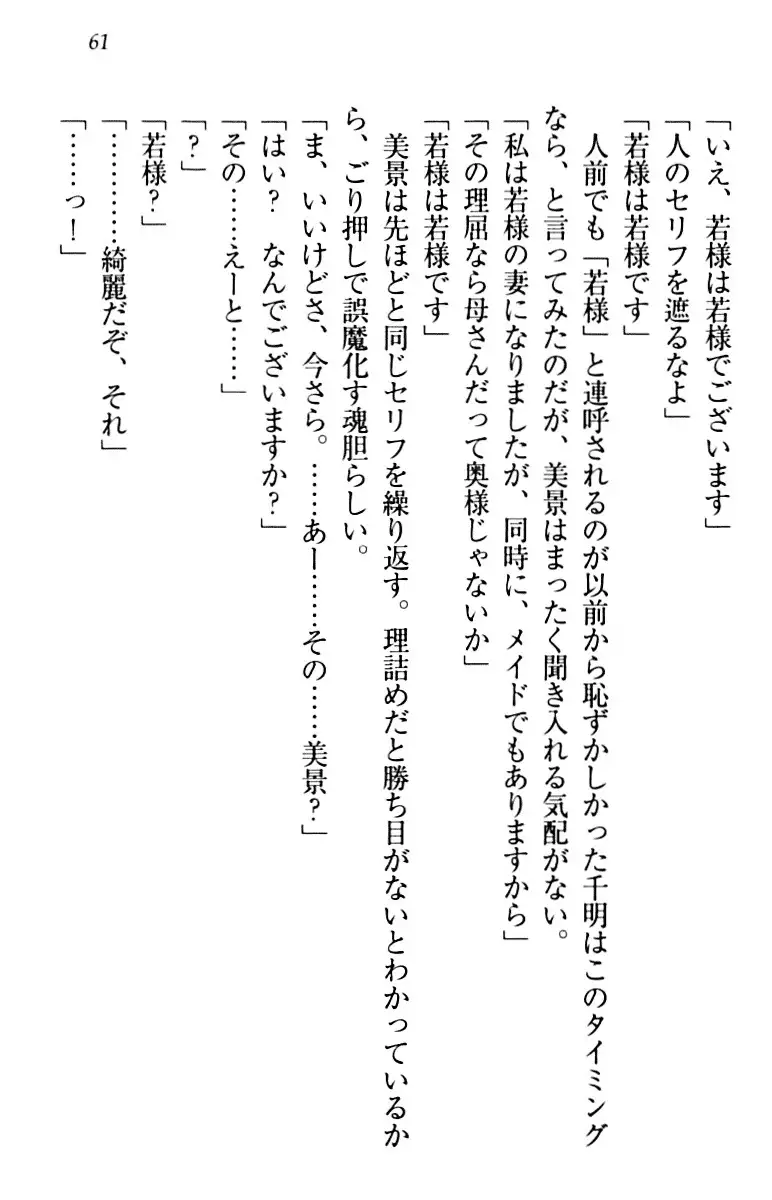 61
「いえ、若様は若様でございます」
「人のセリフを遮るなよ」
「若様は若様です」
　人前でも「若様」と連呼されるのが以前から恥ずかしかった千明はこのタイミング
なら、と言ってみたのだが、美景はまったく聞き入れる気配がない。
「私は若様の妻になりましたが、同時に、メイドでもありますから」
「その理屈なら母さんだって奥様じゃないか」
「若様は若様です」
　美景は先ほどと同じセリフを繰り返す。理詰めだと勝ち目がないとわかっているか
ら、ごり押しで誤魔化す魂胆らしい。
「ま、いいけどさ、今さら。……あー……その……美景？」
「はい？　なんでございますか？」
「その……えーと……」
「？」
「若様？」
「…………綺麗だぞ、それ」
「……っ！」